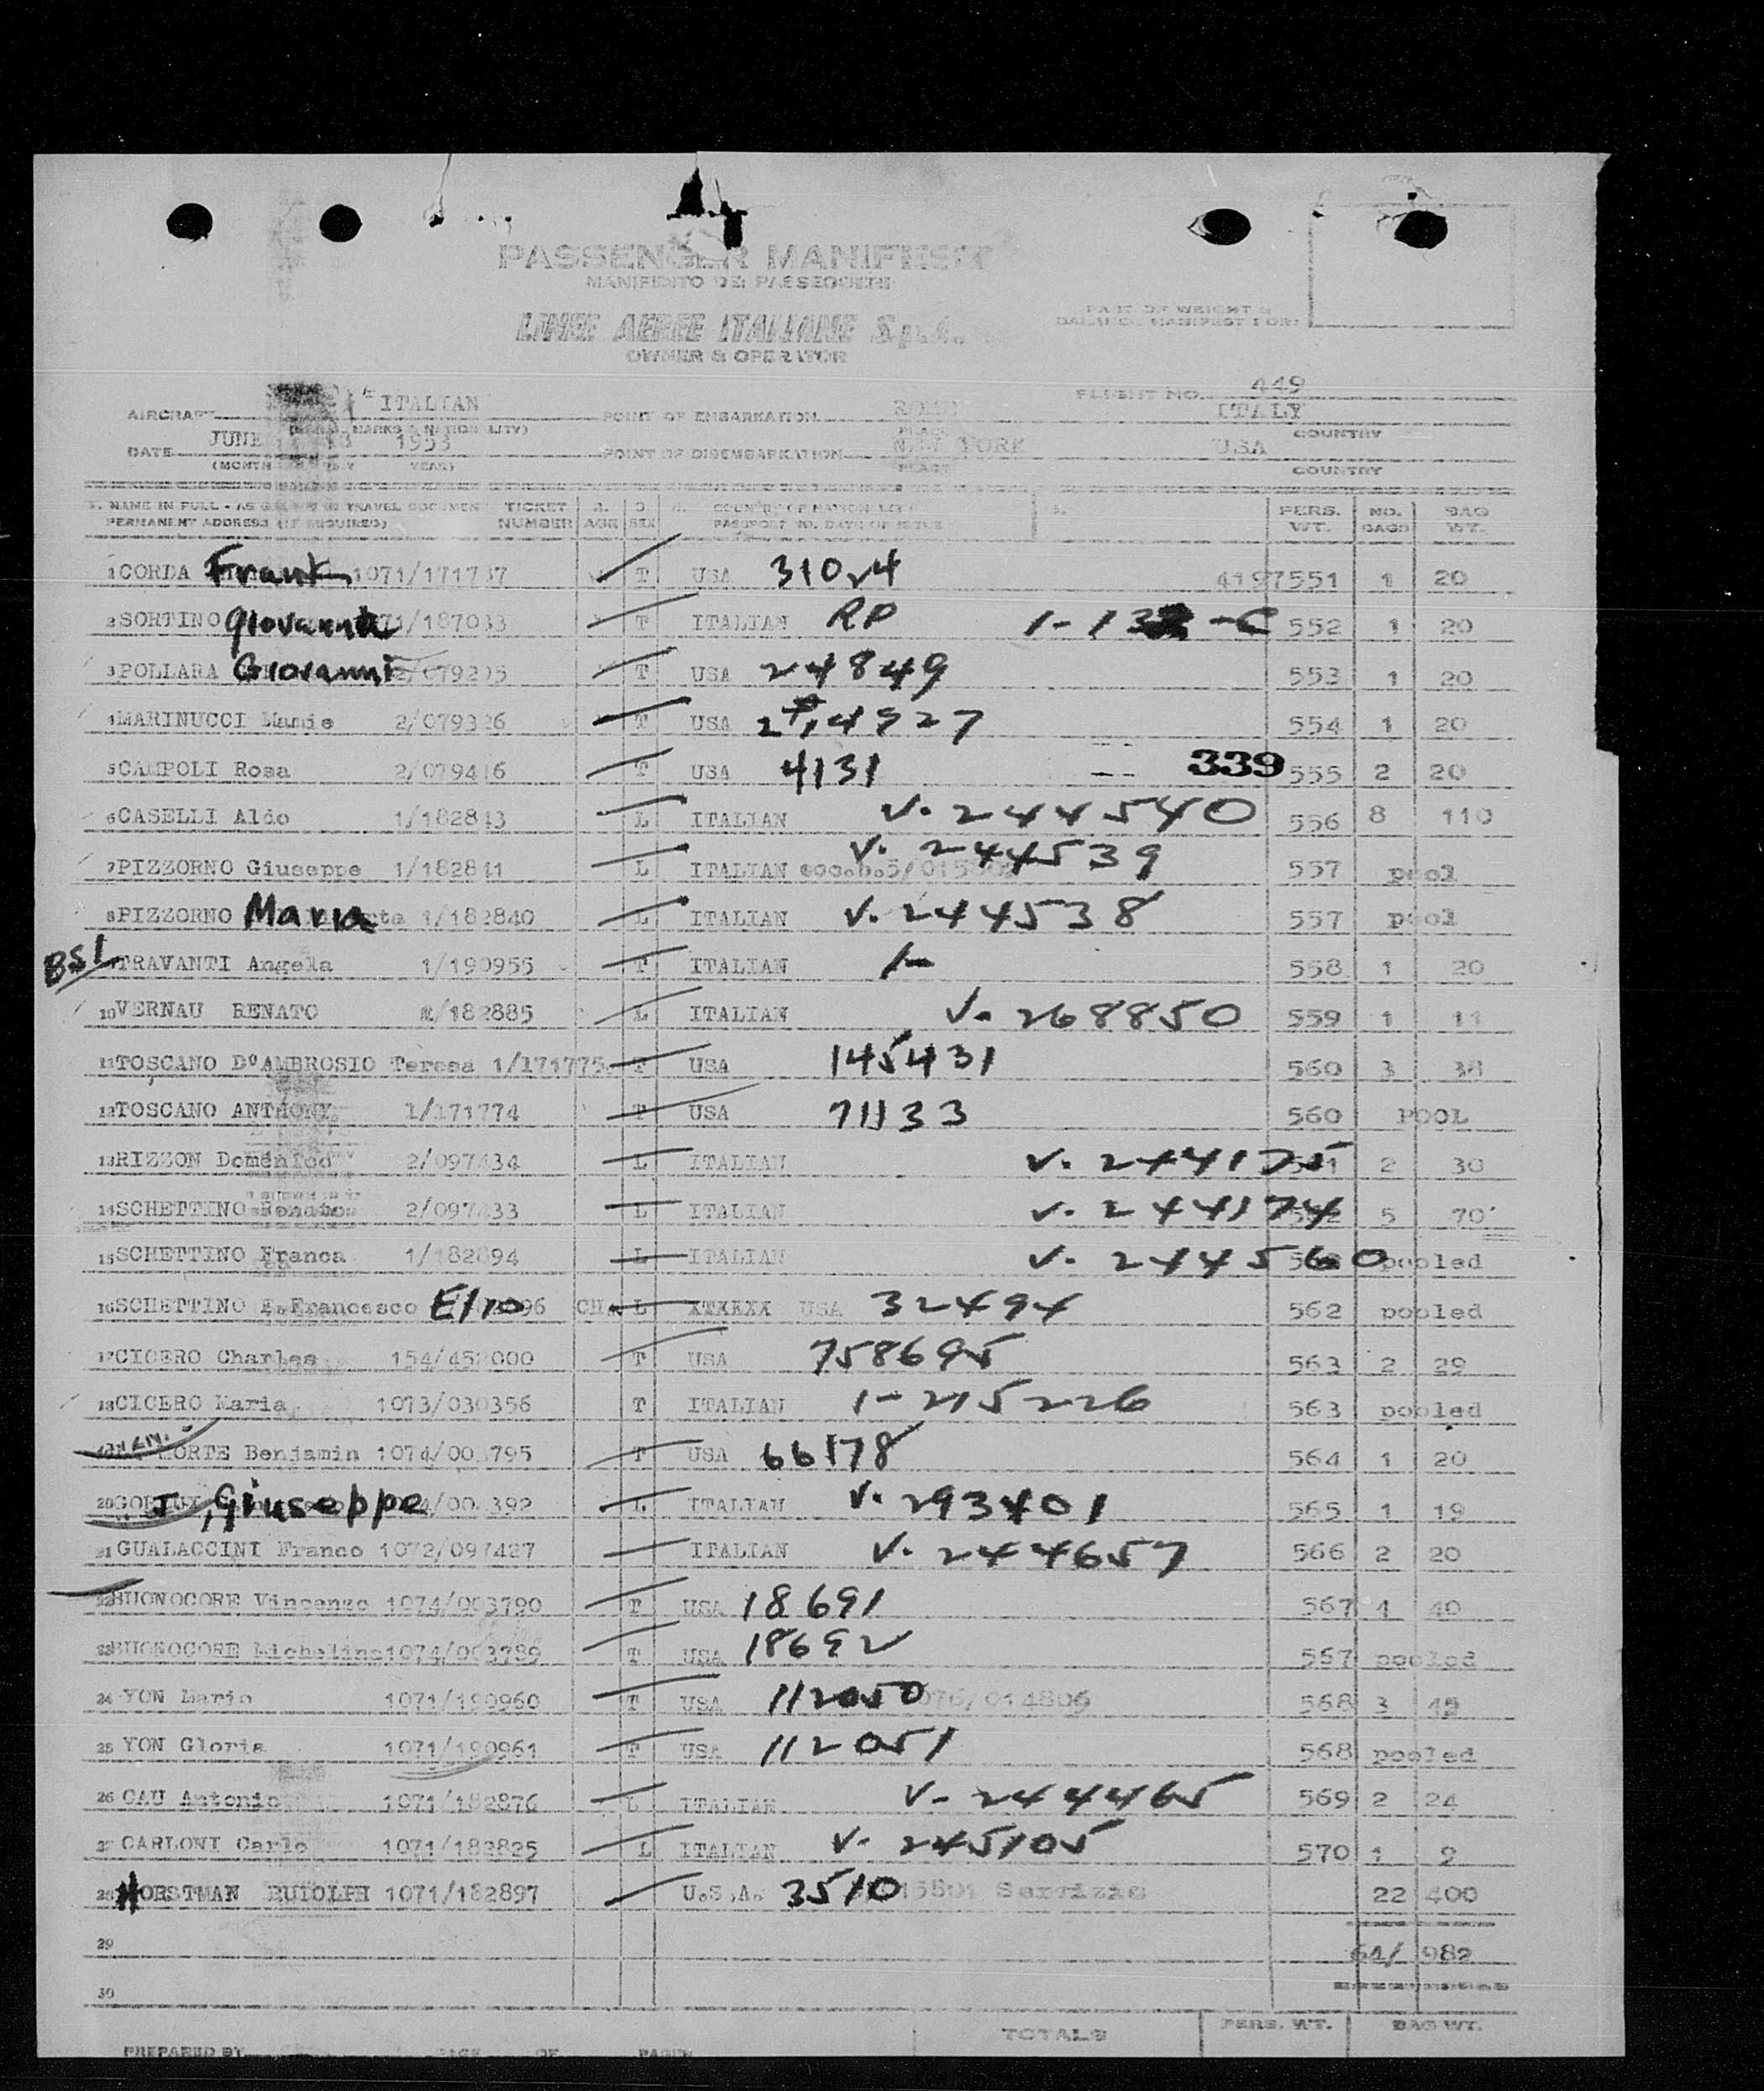 PASSENGER MANIFEST
MANIFESTO DEI PASSEGGERI
LINEE AEREE ITALIANE S.p.A.
OWNER & OPERATOR
PART OF WEIGHT &
BALANCE MANIFEST FOR:
AIRCRAFT ITALIAN POINT OF EMBARKATION ROME ITALY FLIGHT NO. 449
MARKS & NATIONALITY) PLACE COUNTRY
DATE JUNE 1953 POINT OF DISEMBARKATION NEW YORK USA
(MONTH DAY YEAR) PLACE COUNTRY
1. NAME IN FULL - AS GIVEN IN TRAVEL DOCUMENT TICKET 2. 3. 4. COUNTRY OF NATIONALITY 5. PERS. NO. BAG
PERMANENT ADDRESS (IF REQUIRED) NUMBER AGE SEX PASSPORT NO. DATE OF ISSUE WT. BAGS WT.
1 CORDA Frank 1071/171737 T USA 31024 4197551 1 20
2 SORTINO Giovanna 71/187033 T ITALIAN RP 1-13 -C 552 1 20
3 POLLARA Giovanni 2/079205 T USA 24849 553 1 20
4 MARINUCCI Mamie 2/079326 T USA 554 1 20
5 CAMPOLI Rosa 2/079416 T USA 4131 339 555 2 20
6 CASELLI Aldo 1/182843 L ITALIAN V. 244540 556 8 110
7 PIZZORNO Giuseppe 1/182841 L ITALIAN V. 244539 557 pool
8 PIZZORNO Maria 1/182840 L ITALIAN V. 244538 557 pool
BSI TRAVANTI Angela 1/190955 T ITALIAN 1- 558 1 20
10 VERNAU RENATO 1/182885 L ITALIAN V. 268850 559 1 11
11 TOSCANO D'AMBROSIO Teresa 1/171775 T USA 145431 560 3 38
12 TOSCANO ANTHONY 1/171774 T USA 71133 560 POOL
13 RIZZON Domenico 2/097434 L ITALIAN V. 244175 2 30
14 SCHETTINO 2/097433 L ITALIAN V. 244174 5 70
15 SCHETTINO Franca 1/182894 L ITALIAN V. 244560 pooled
16 SCHETTINO F. Francesco Elio 96 CH. L USA 32494 562 pooled
17 CICERO Charles 154/45 000 T USA 758695 563 2 29
18 CICERO Maria 1073/030356 T ITALIAN 1-215226 563 pooled
19 Benjamin 1074/00 795 T USA 66178 564 1 20
20 J. Giuseppe 392 L ITALIAN V. 293401 565 1 19
21 GUALACCINI Franco 1072/097427 ITALIAN V. 244657 566 2 20
22 BUONOCORE Vincenzo 1074/003790 T USA 18691 567 4 40
23 BUONOCORE Michelina 1074/003789 T USA 18692 567 pooled
24 YON Mario 1071/190960 T USA 112050 076/014806 568 3
25 YON Gloria 1071/190961 T USA 112051 568 pooled
26 CAU Antonio 1071/182876 L ITALIAN V- 244465 569 2 24
27 CARLONI Carlo 1071/182825 L ITALIAN V. 245105 570 1 9
28 HORSTMAN RUDOLPH 1071/182897 U.S.A. 3510 Servizio 22 400
29 64/ 982
30
TOTALS PERS. WT. BAG WT.
PREPARED BY PAGE OF PAGES